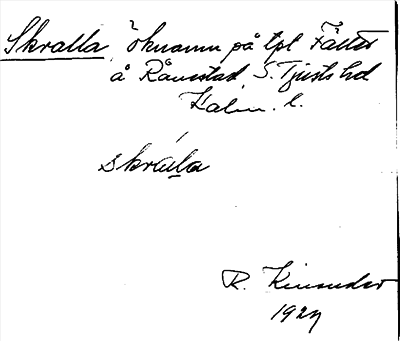 Skralla, öknamn på tpl Fället
å Rånestad, S. Tjusts hd
Kalm. l.
skrála
R. Kinander
1927